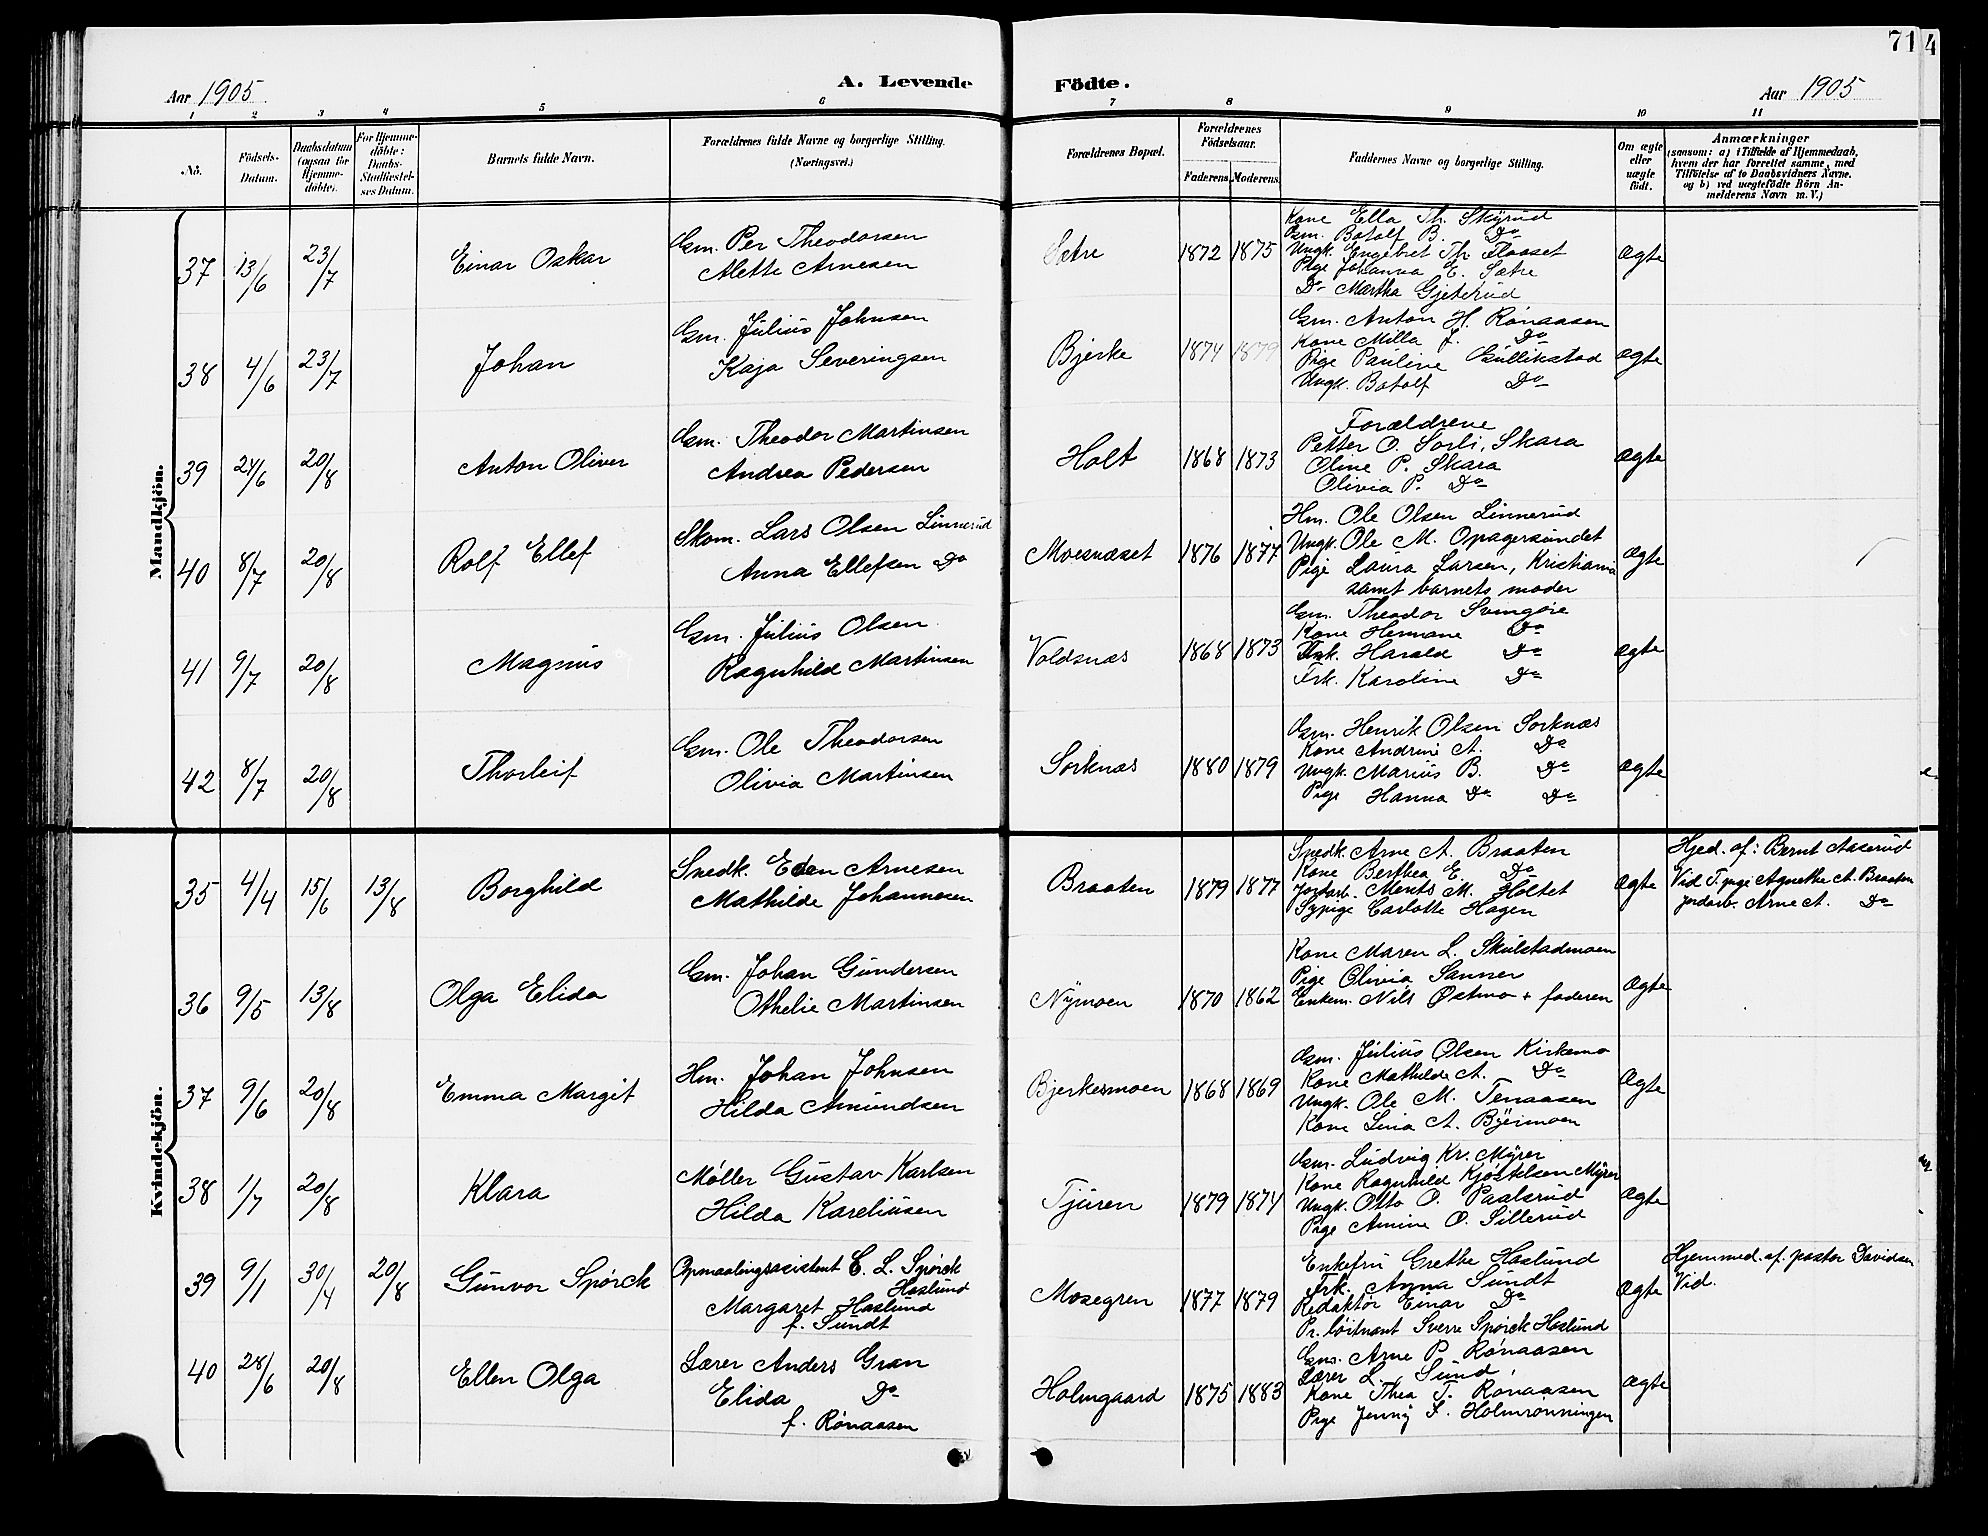 71
4
Aar 1905.
A. Levende
Födte.
Aar 1905
1 2 3 4 5 6 7 8 9 10 11
No.
Födsels-Datum.
Daabsdatum (ogsaa for Hjemmedöbte).
For Hjemmedöbte: Daabs-Stadfæstelses Datum.
Barnets fulde Navn.
Forældrenes fulde Navne og borgerlige Stilling.
(Næringsvei.)
Forældrenes Bopæl.
Forældrenes Födselsaar.
Faderens. Moderens.
Faddernes Navne og borgerlige Stilling.
Om ægte eller uægte født.
Anmærkninger
(saasom: a) i Tilfælde af Hjemmedaab,
hvem der har forrettet samme, med
Tilföielse af to Daabsvidners Navne,
og b) ved uægtefödte Börn An-
melderens Navn m. V.)
Mandkjön.
37 13/6 23/7 Einar Oskar
Gm. Per Theodorsen
Alette Arnesen
Sætre 1872 1875
Kone Ella Th. Skyrud
Gm. Botolf B. Do
Ungk. Engebret Th. Flaaset
Pige Johanna E. Sætre
Do Martha Gjeterud
Ægte
38 4/6 23/7 Johan
Gm. Julius Johnsen
Kaja Severingsen
Bjerke 1874 1879
Gm. Anton H. Rønaasen
Kone Milla J. Do
Pige Pauline Gullikstad
Ungk. Botolf Do
Ægte
39 24/6 20/8 Anton Oliver
Gm. Theodor Martinsen
Andrea Pedersen
Holt 1868 1873
Forældrene
Petter O. Sorli, Skara
Oline P. Skara
Olivia P. Do
Ægte
40 8/7 20/8 Rolf Ellef
Skom. Lars Olsen Linnerud
Anna Ellefsen Do
Moesnæset 1876 1877
Hm. Ole Olsen Linnerud
Ungk. Ole M. Opagersundet
Pige Laura Larsen, Kristiania
samt barnets moder
Ægte
41 9/7 20/8 Magnus
Gm. Julius Olsen
Ragnhild Martinsen
Voldsnæs 1868 1873
Gm. Theodor Svingøie
Kone Hermane Do
Harald Do
Frk. Karoline Do
Ægte
42 8/7 20/8 Thorleif
Gm. Ole Theodorsen
Olivia Martinsen
Sorknæs 1880 1879
Gm. Henrik Olsen Sorknæs
Kone Andrine A. Do
Ungk. Marius B. Do
Pige Hanna Do Do
Ægte
Kvindekjön.
35 4/4 15/6 13/8 Borghild
Snedk. Eden Arnesen
Mathilde Johannesen
Braaten 1879 1877
Snedk. Arne A. Braaten
Kone Berthea E. Do
Jordarb. Ments M. Holtet
Sypige Carlotte Hagen
Ægte
Hjed. af: Bernt Aaserud
Vid T. pige Agnethe A. Braaten
jordarb. Arne A. Do
36 9/5 13/8 Olga Elida
Gm. Johan Gundersen
Othelie Martinsen
Nymoen 1870 1862
Kone Maren L. Skulstadmoen
Pige Olivia Sanner
Enkem. Nils Østmo + faderen
Ægte
37 9/6 20/8 Emma Margit
Hm. Johan Johnsen
Hilda Amundsen
Bjerkesmoen 1868 1869
Gm. Julius Olsen Kirkemo
Kone Mathilde A. Do
Ungk. Ole M. Tenaasen
Kone Lina A. Byermoen
Ægte
38 1/7 20/8 Klara
Møller Gustav Karlsen
Hilda Kareliusen
Tjuren 1879 1874
Gm. Ludvig Kr. Myrer
Kone Ragnhild Kjøstelsen Myrer
Ungk. Otto O. Paalsrud
Pige Amine O. Sillerud
Ægte
39 9/1 30/4 20/8 Gunvor Spørck
Opmaalingsasistent C. L. Spørck
Haslund
Margaret Haslund
f. Sundt
Mosegren 1877 1879
Enkefru Grethe Haslund
Frk. Anna Sundt
Redaktør Einar Do
Pr. løitnant Sverre Spørck Haslund
Ægte
Hjemmed. af. pastor Davidsen
Vid.
40 28/6 20/8 Ellen Olga
Lærer Anders Gran
Elida Do
f. Rønaasen
Holmgaard 1875 1883
Gm. Arne P. Rønaasen
Lærer L. Sund
Kone Thea T. Rønaasen
Pige Jenny F. Holmrønningen
Ægte